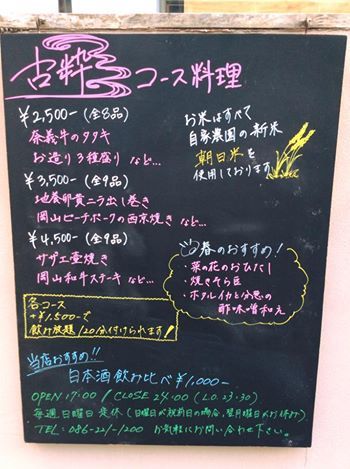 古粋 コース料理
¥2,500-(全8品)
奈義牛のタタキ
お造り3種盛り など…
¥3,500-(全9品)
地養卵黄ニラ出し巻き
岡山ピーチポークの西京焼き など…
¥4,500-(全9品)
サザエ壷焼き
岡山和牛ステーキ など…
お米はすべて
自家農園の新米
朝日米を
使用しております
春のおすすめ!
・菜の花のおひたし
・焼きそら豆
・ホタルイカと分葱の
酢味噌和え
各コース
+¥1,500-で
飲み放題120分付けられます!
当店おすすめ!!
日本酒飲み比べ ¥1,000-
OPEN 17:00 / CLOSE 24:00 (L.O.23:30)
毎週日曜日定休(日曜日が祝前日の場合、翌月曜日がお休み)
TEL: 086-221-1200 お気軽にお問い合わせ下さい。